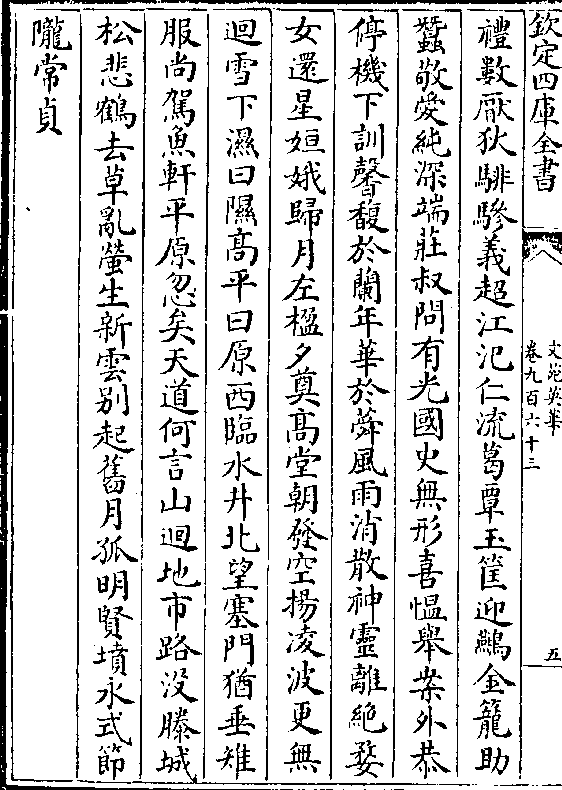 欽定四庫全書
文苑英華
卷九百六十三
五
禮數厭狄騑驂義超江汜仁流葛覃玉筐迎鷰金籠助
蠶敬愛純深端莊叔問有光國史無形喜愠舉案外恭
停機下訓馨馥於蘭年華於蕣風雨消散神靈離絶婺
女還星姮娥歸月左楹夕奠高堂朝發空揚凌波更無
迴雪下濕曰隰高平曰原西臨水井北望塞門猶垂雉
服尚駕魚軒平原忽矣天道何言山迴地市路没滕城
松悲鶴去草亂螢生新雲别起舊月孤明賢墳永式節
隴常貞